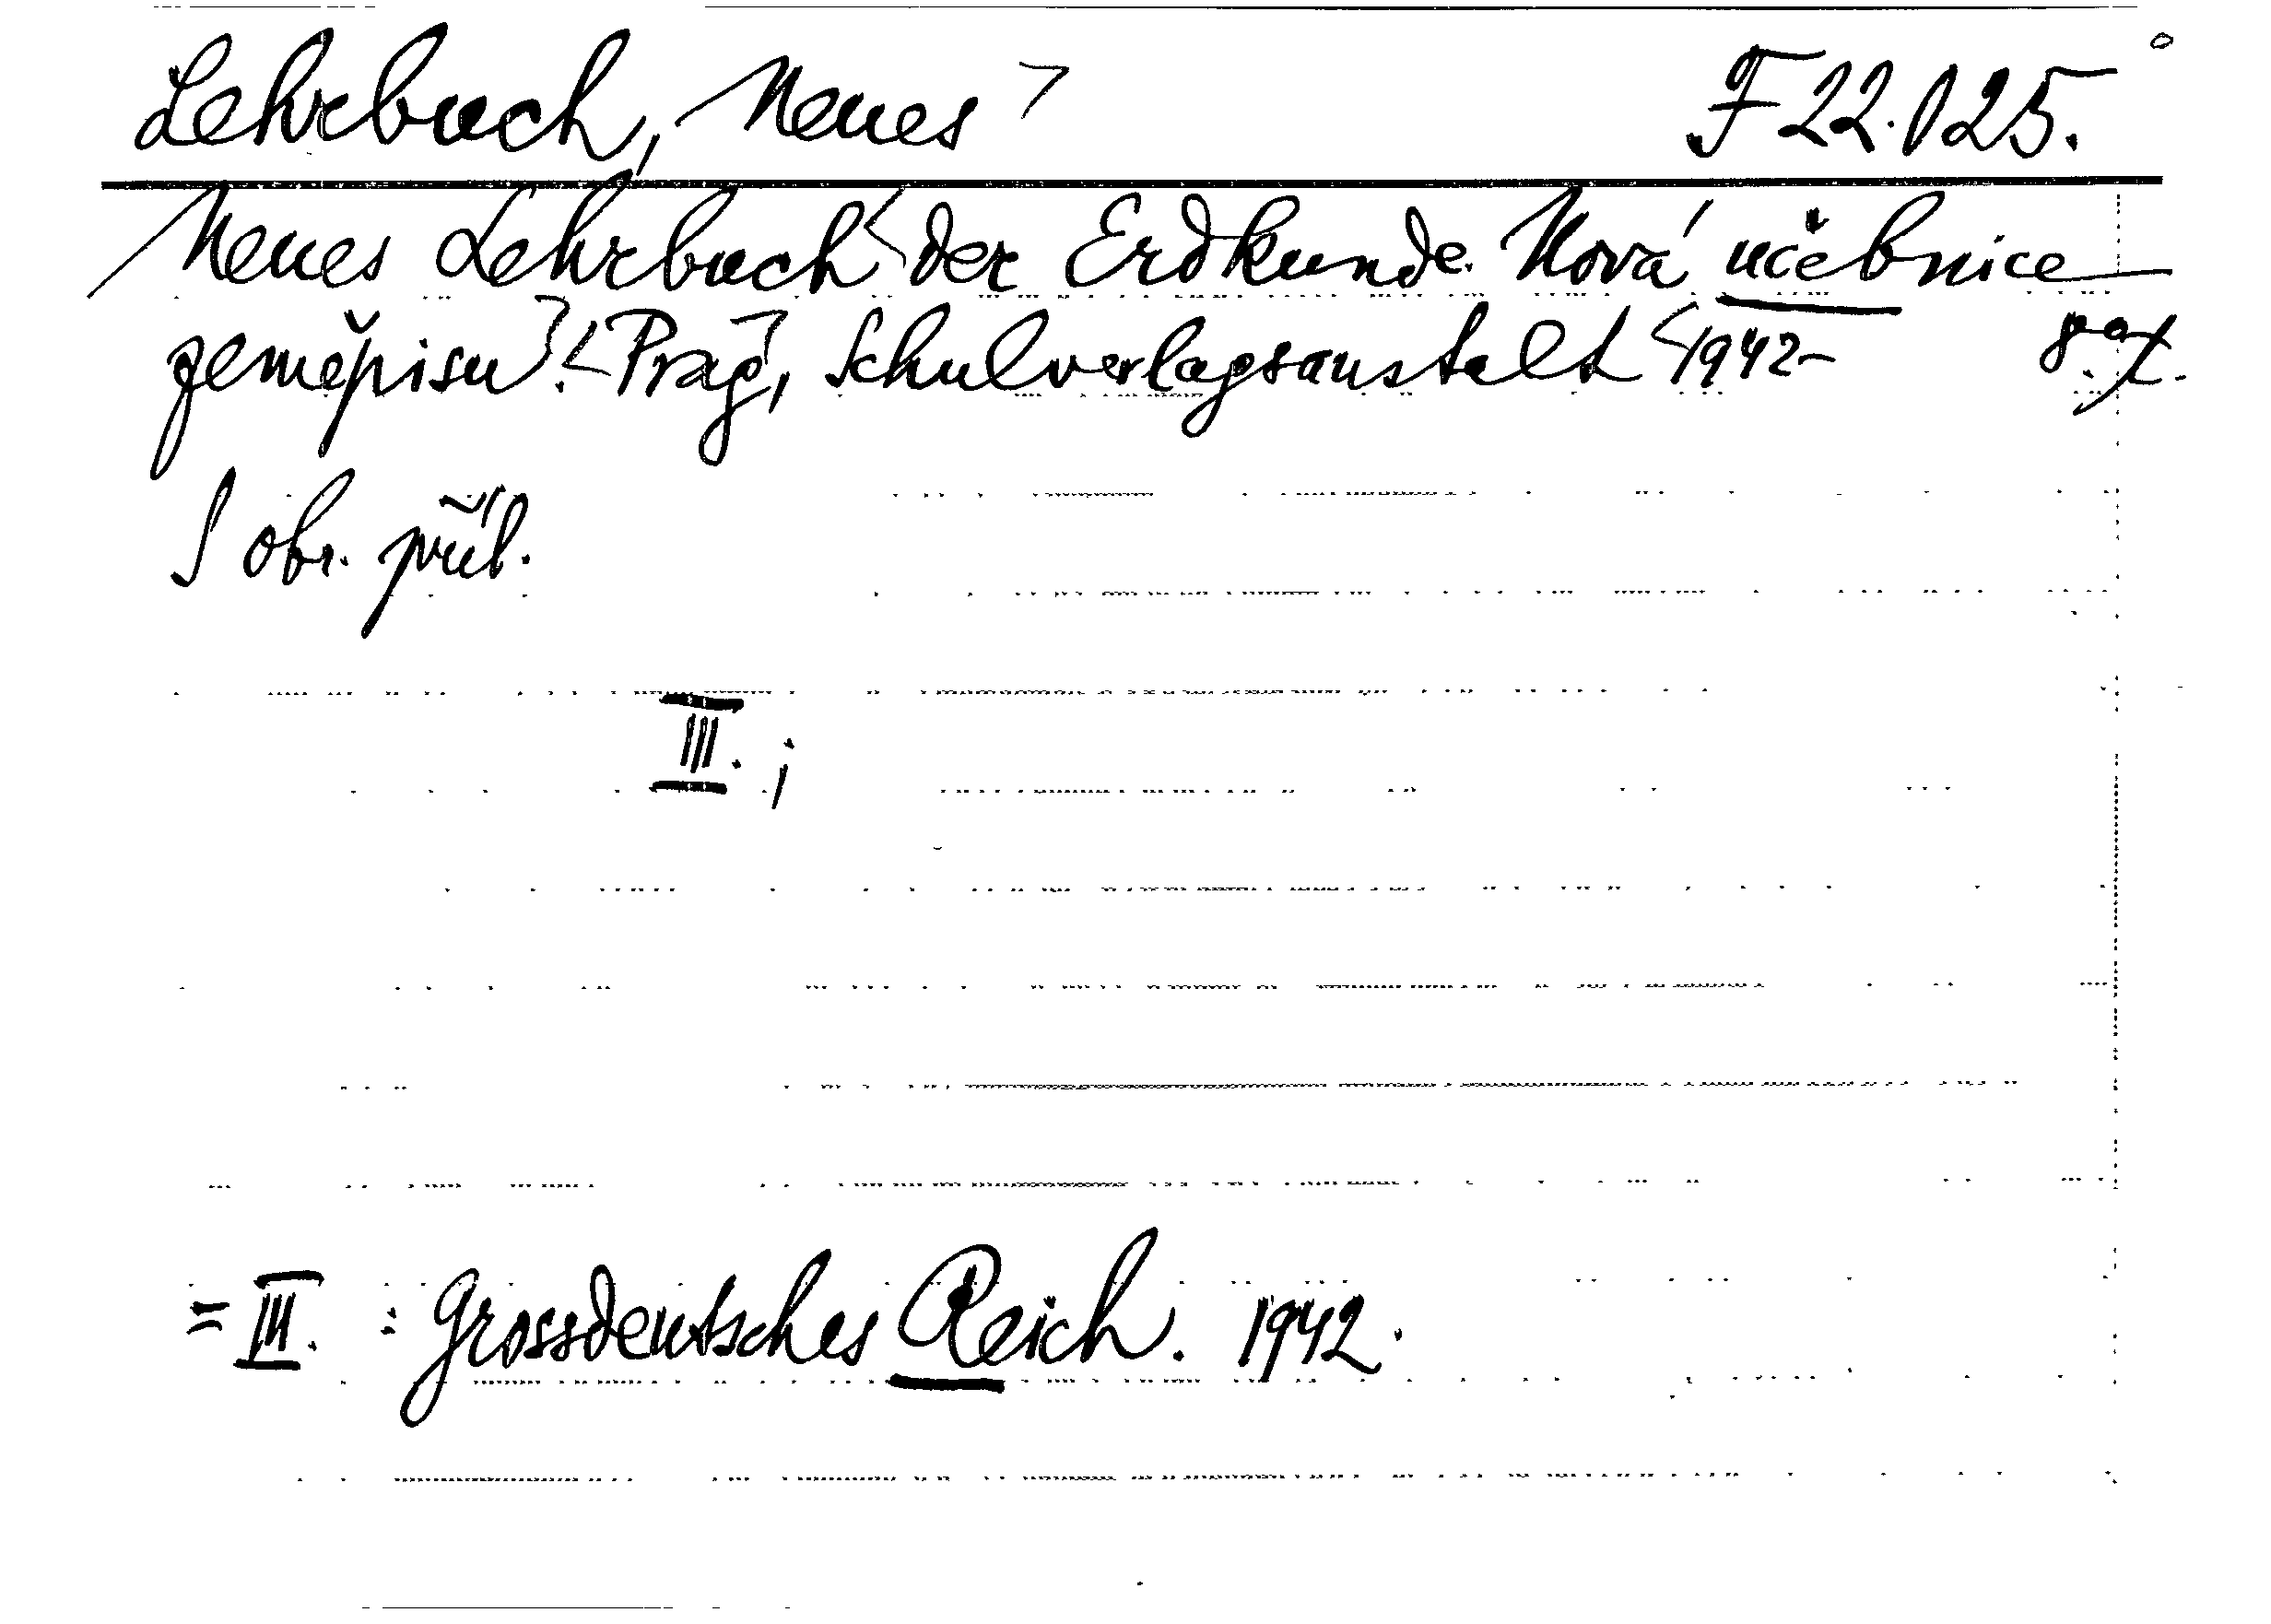 Lehrbuch, Neues F 22.025.
Neues Lehrbuch der Erdkunde. Nová učebnice
zeměpisu. Prag, Schulverlagsanstalt 1942- 8°.
S obr. příl.
III. ;
= III. : Grossdeutsches Reich. 1942.